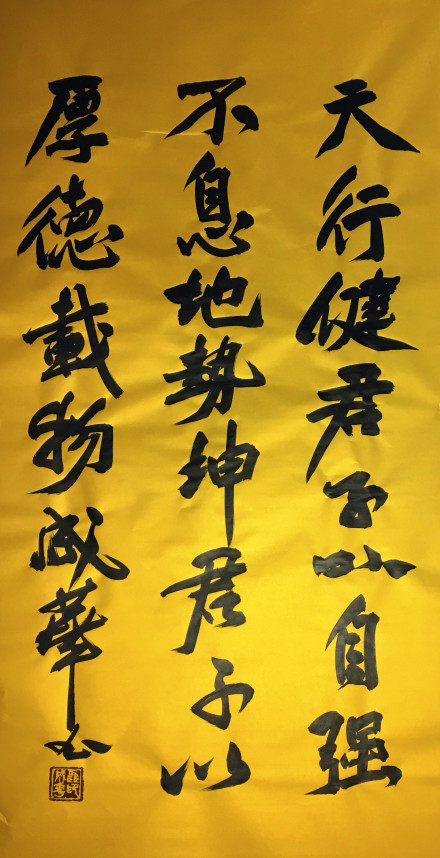 天行健君子以自强
不息地势坤君子以
厚德載物成華书